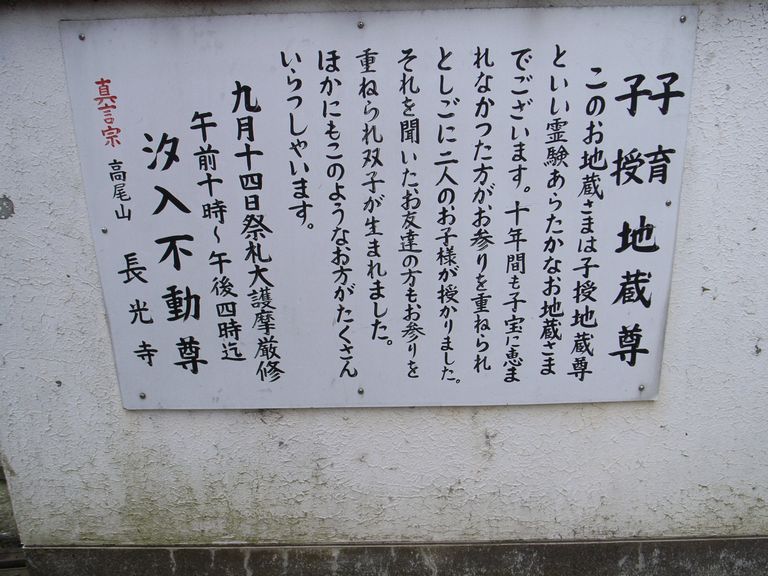 子育
子授 地蔵尊
このお地蔵さまは子授地蔵尊
といい霊験あらたかなお地蔵さま
でございます。十年間も子宝に恵ま
れなかつた方が、お参りを重ねられ
としごに二人のお子様が授かりました。
それを聞いたお友達の方もお参りを
重ねられ双子が生まれました。
ほかにもこのようなお方がたくさん
いらつしやいます。
九月十四日祭礼大護摩厳修
午前十時〜午後四時迄
汐入不動尊
真言宗 高尾山 長光寺